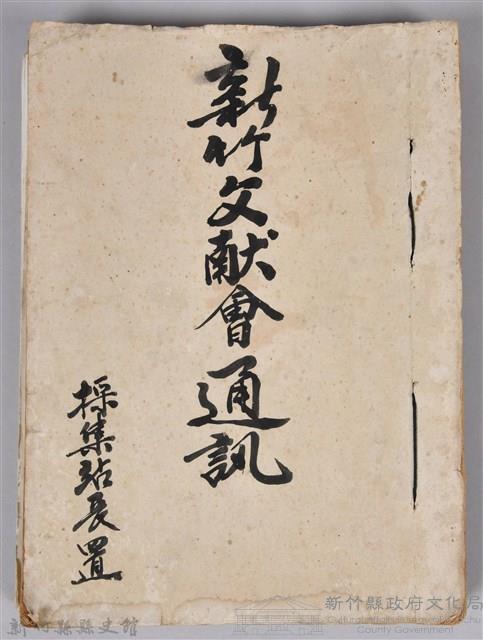 新竹文献會通訊
採集站長置
新竹縣縣史館
新竹縣政府文化局
County Government